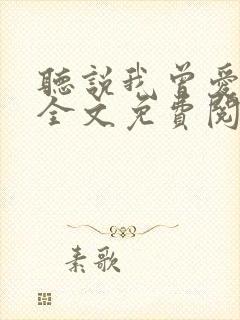 聽說我曾愛
全文免費閱
素歌